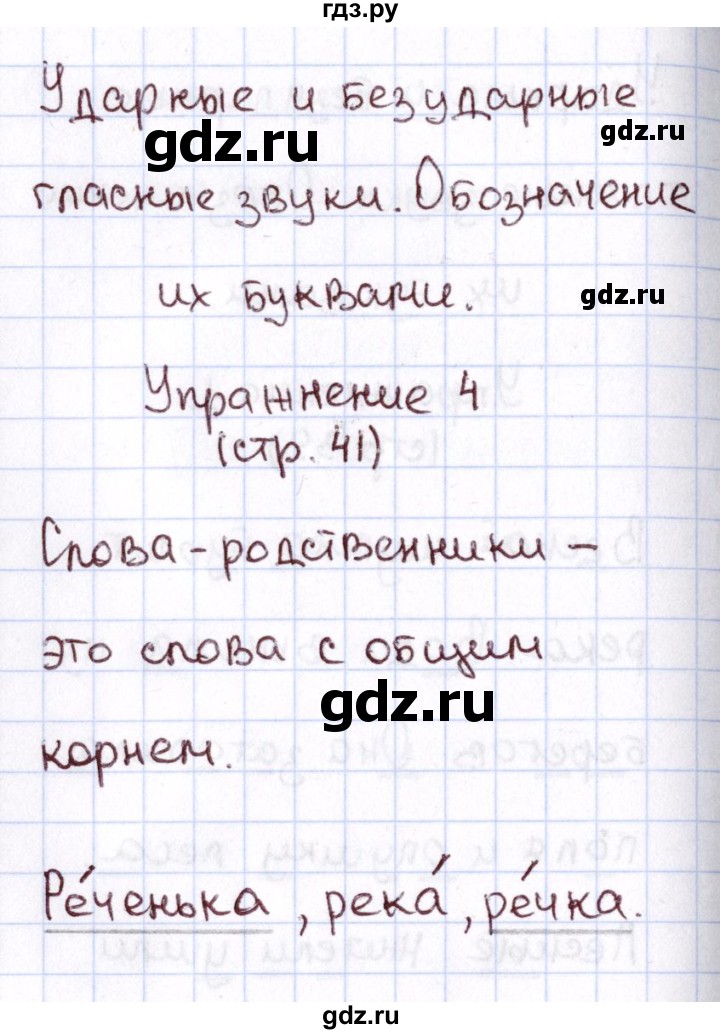 гдз.ру
Ударные и безударные
gdz.ru
gdz.ru
гласные звуки. Обозначение
их буквами.
gdz.ru
Упражнение 4
(стр. 41)
Слова-родственники –
это слова с общим
gdz.ru
корнем.
Ре́ченька, река́, ре́чка.
gdz.ru